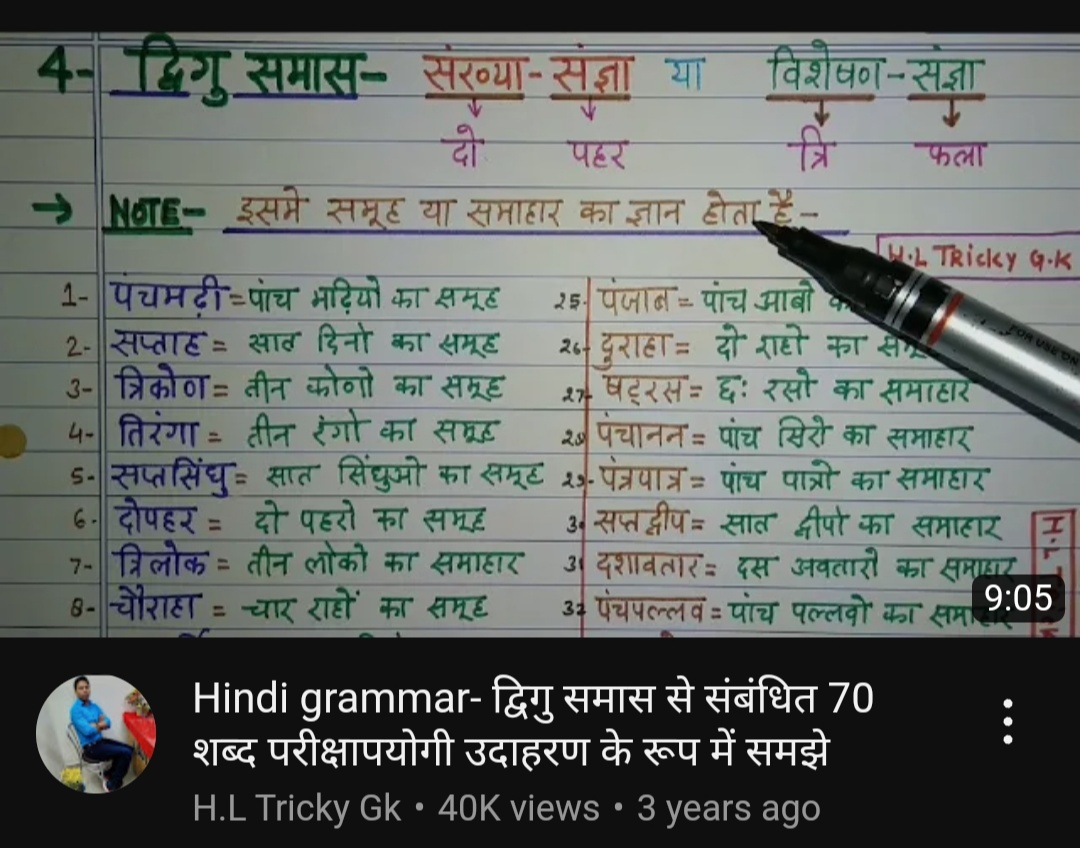 4- द्विगु समास- संख्या-संज्ञा या विशेषण-संज्ञा
दो पहर त्रि फला
→ NOTE- इसमे समूह या समाहार का ज्ञान होता है-
H.L TRicky G.K
1- पंचमढ़ी = पांच मढ़ियो का समूह
2- सप्ताह = सात दिनो का समूह
3- त्रिकोण = तीन कोणो का समूह
4- तिरंगा = तीन रंगो का समूह
5- सप्तसिंधु = सात सिंधुओ का समूह
6- दोपहर = दो पहरो का समूह
7- त्रिलोक = तीन लोको का समाहार
8- चौराहा = चार राहों का समूह
25- पंजाब = पांच आबो
26- दुराहा = दो राहो का
27- षट्रस = छ: रसो का समाहार
28 पंचानन = पांच सिरो का समाहार
29- पंत्रपात्र = पांच पात्रो का समाहार
सप्तद्वीप = सात द्वीपो का समाहार
दशावतार = दस अवतारो का समाहार
32 पंचपल्लव = पांच पल्लवो का समाहार
9:05
Hindi grammar- द्विगु समास से संबंधित 70
शब्द परीक्षापयोगी उदाहरण के रूप में समझे
H.L Tricky Gk • 40K views • 3 years ago